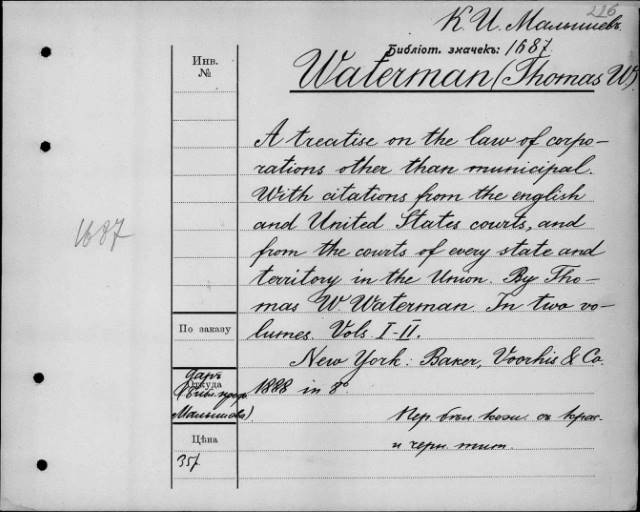 226
К. И. Малышевъ
Библіот. значекъ: 1687.
Waterman (Thomas W).
Инв.
№
A treatise on the law of corpo-
rations other than municipal.
With citations from the english
and United States courts, and
from the courts of every state and
territory in the Union. By Tho-
mas W. Waterman. In two vo-
lumes. Vols. I-II.
New York: Baker, Voorhis & Co.
1888 in 8°
1687
По заказу
даръ
Откуда
(Библ. проф.
Малышева).
Цѣна
35f
Пер. бѣл. кожи. съ крас.
и черн. тит.